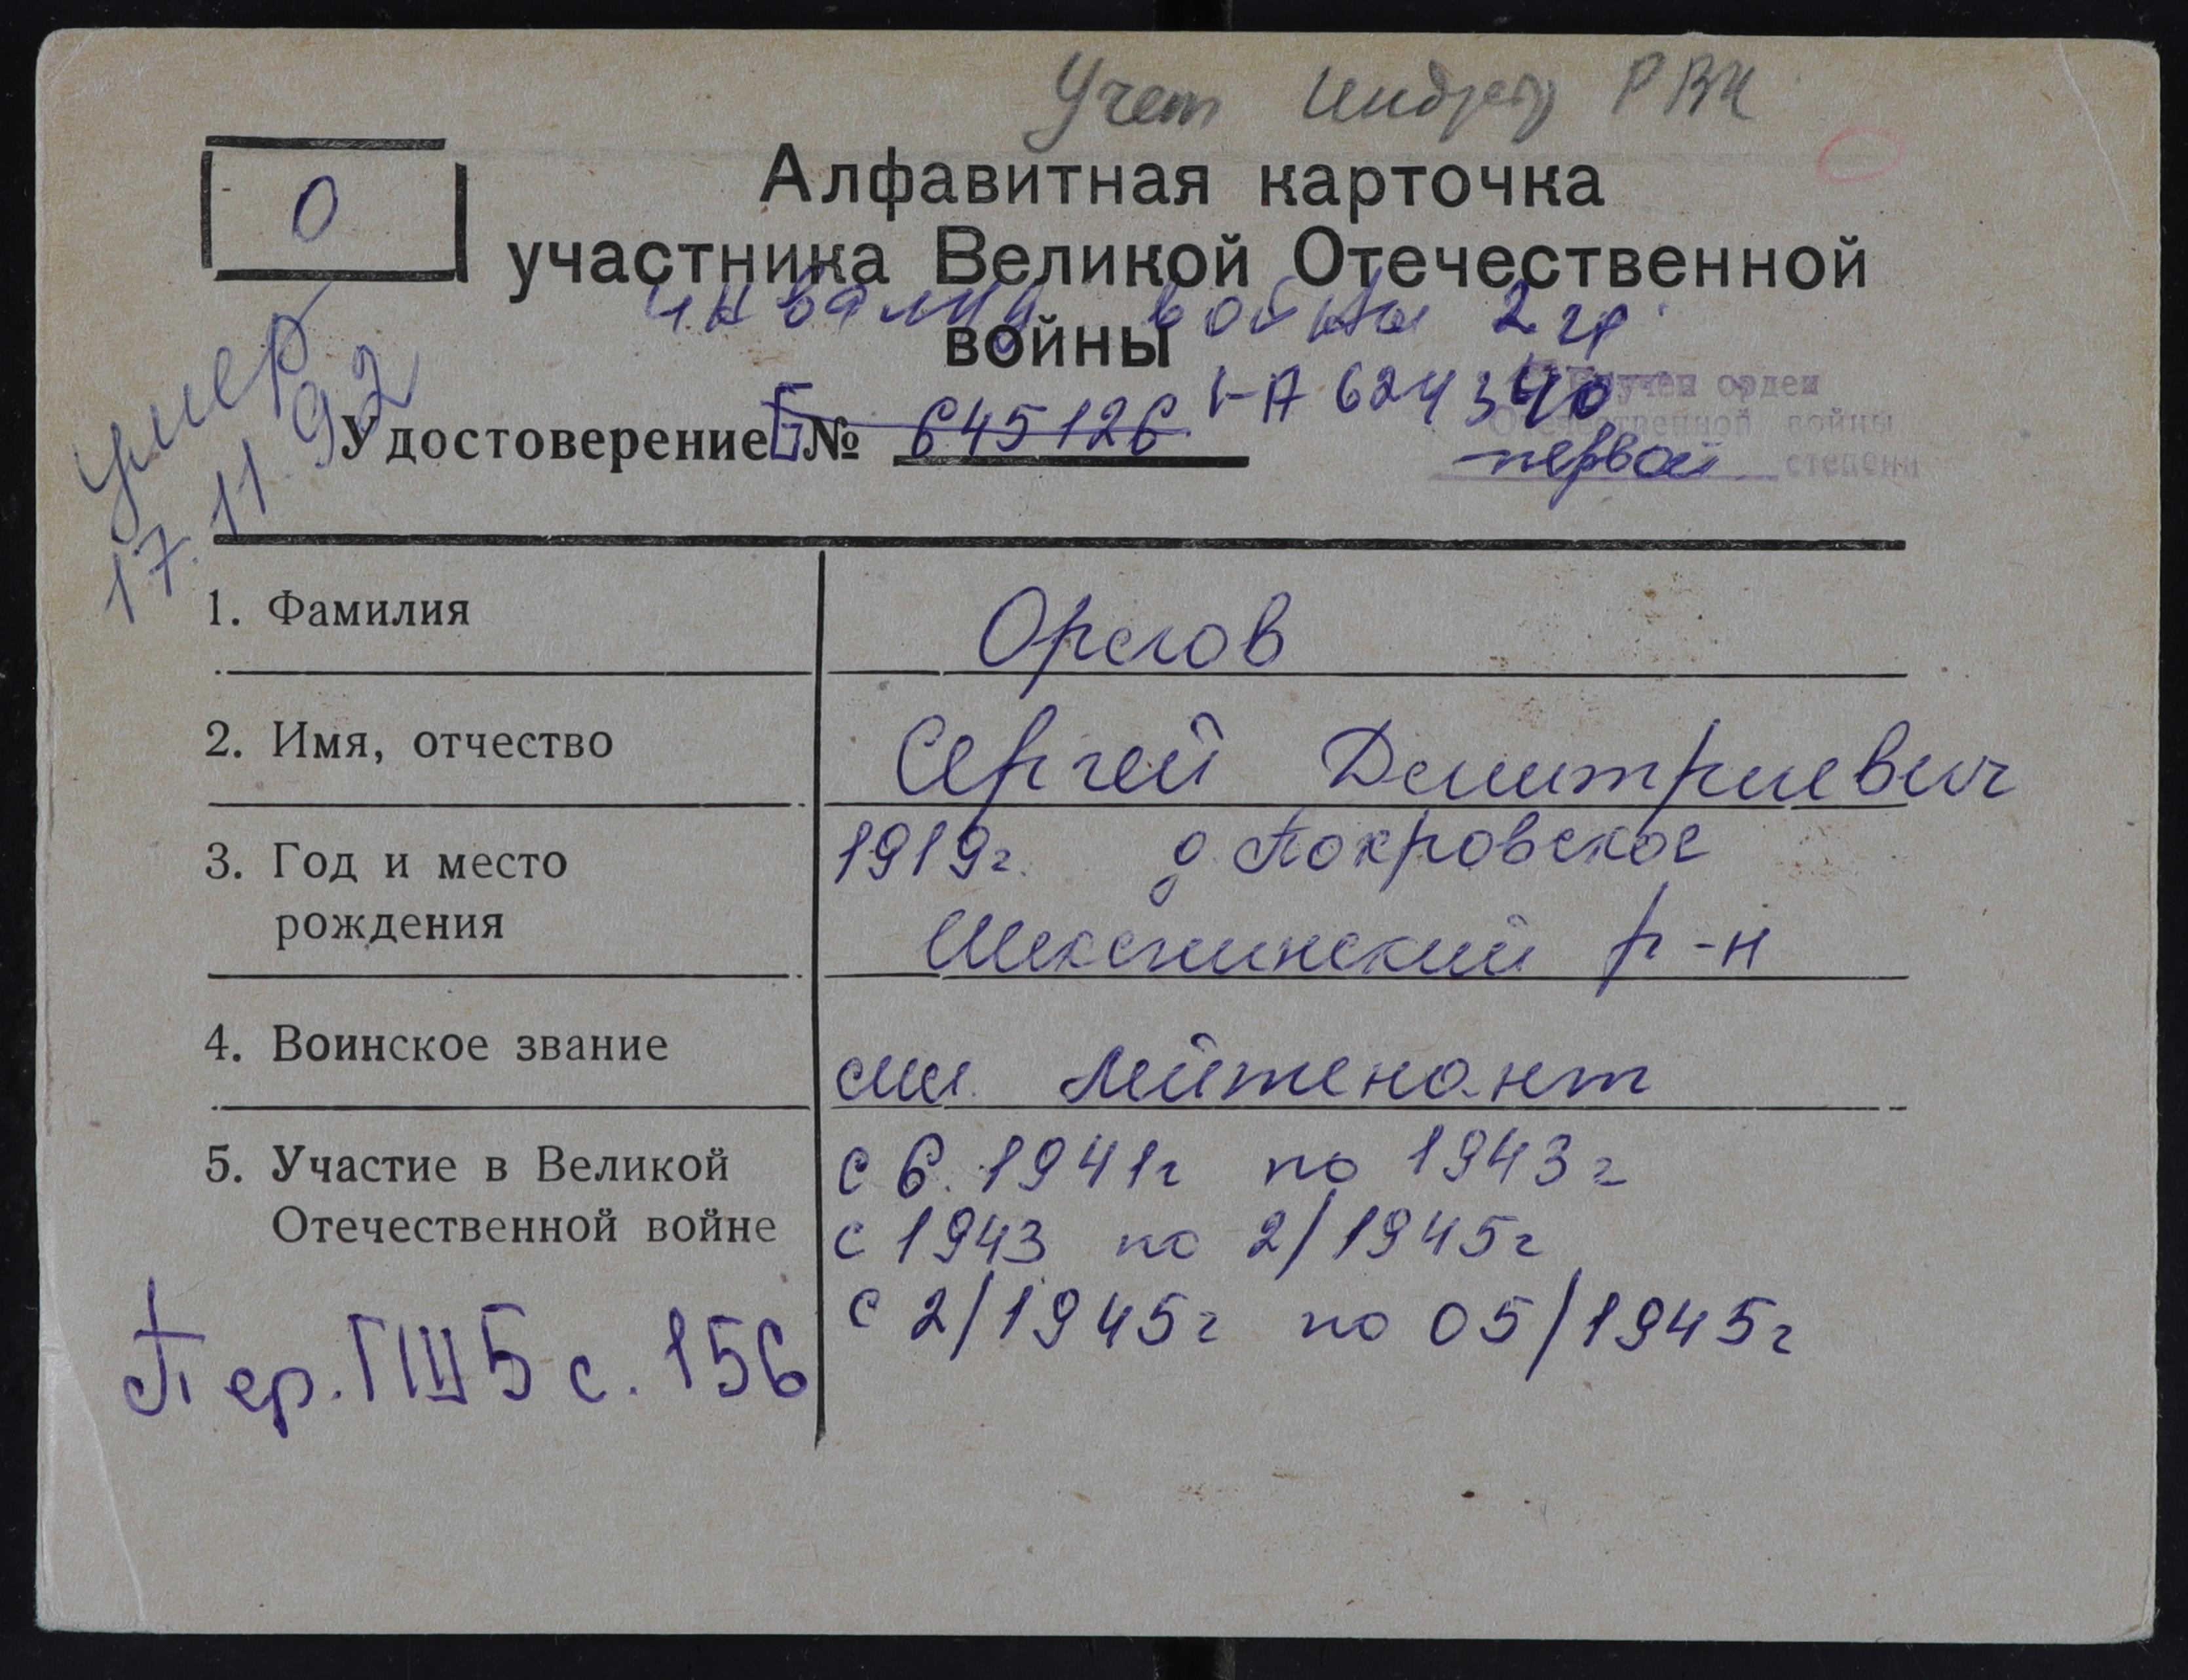 Учет Индус РВК
О
Алфавитная карточка
участника Великой Отечественной
инвалид войны 2 гр.
войны
Умер
17.11.92
Удостоверение Б № 645126 I-А 624340
Вручен орден
Отечественной войны
первой степени
1. Фамилия Орлов
2. Имя, отчество Сергей Дмитриевич
3. Год и место 1919г. д. Покровское
рождения Шекснинский р-н
4. Воинское звание мл. лейтенант
5. Участие в Великой с 6.1941г по 1943г
Отечественной войне с 1943 по 2/1945г
с 2/1945г по 05/1945г
Пер. ГШ 5 с. 156